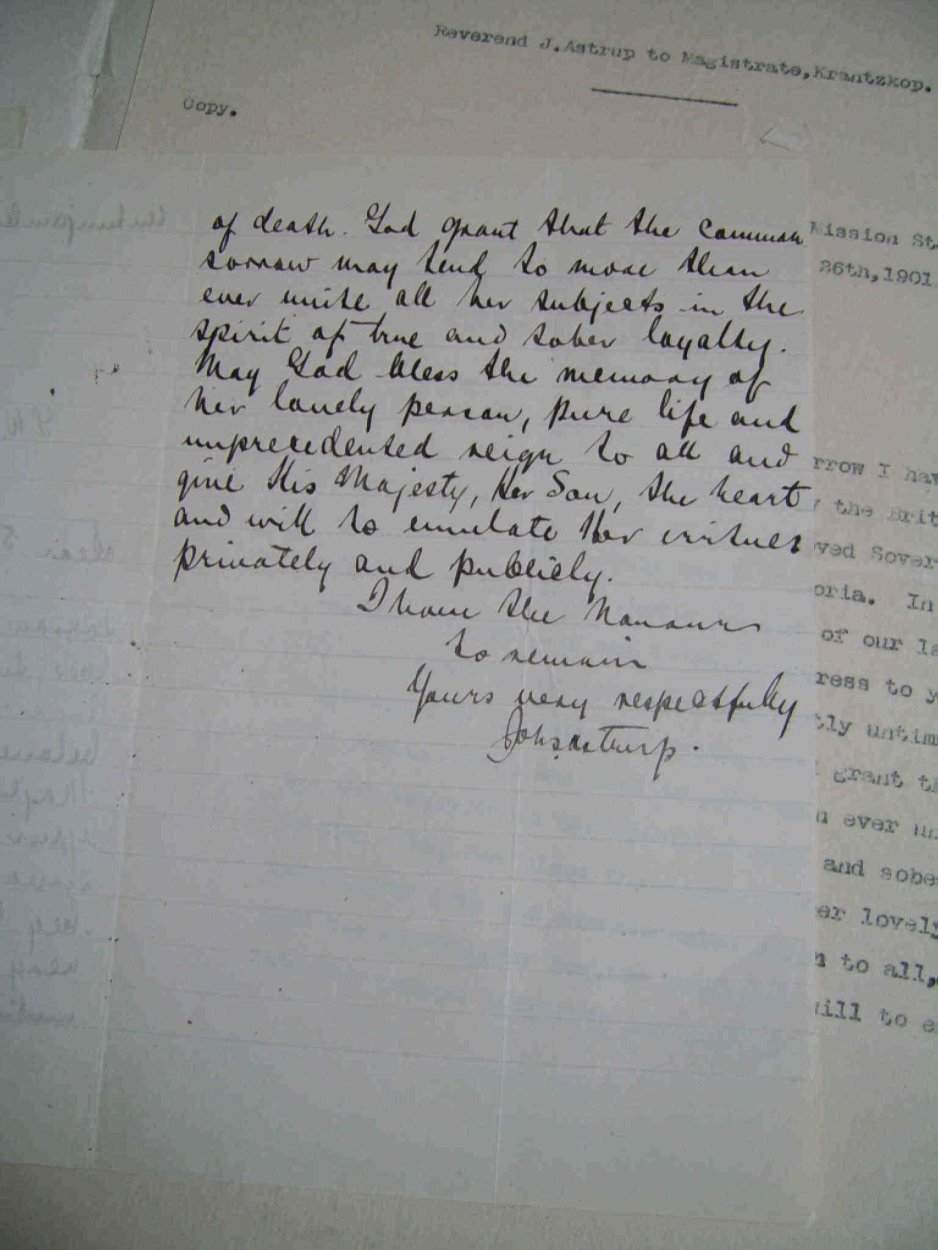 Reverend J.Astrup to Magistrate,Krantzkop.
Copy.
Mission St
26th,1901
of death. God grant that the common
sorrow may tend to more than
ever unite all her subjects in the
spirit of true and sober loyalty.
May God bless the memory of
her lovely person, pure life and
unprecedented reign to all and
give His Majesty, Her Son, the heart
and will to emulate Her virtues
privately and publicly.
I have the Honour
to remain
Yours very respectfully
Joh. Astrup.
rrow I hav
the Brit
ved Sover
oria. In
of our la
ress to y
tly untim
grant t
ever un
and sobe
er lovely
to all,
will to e